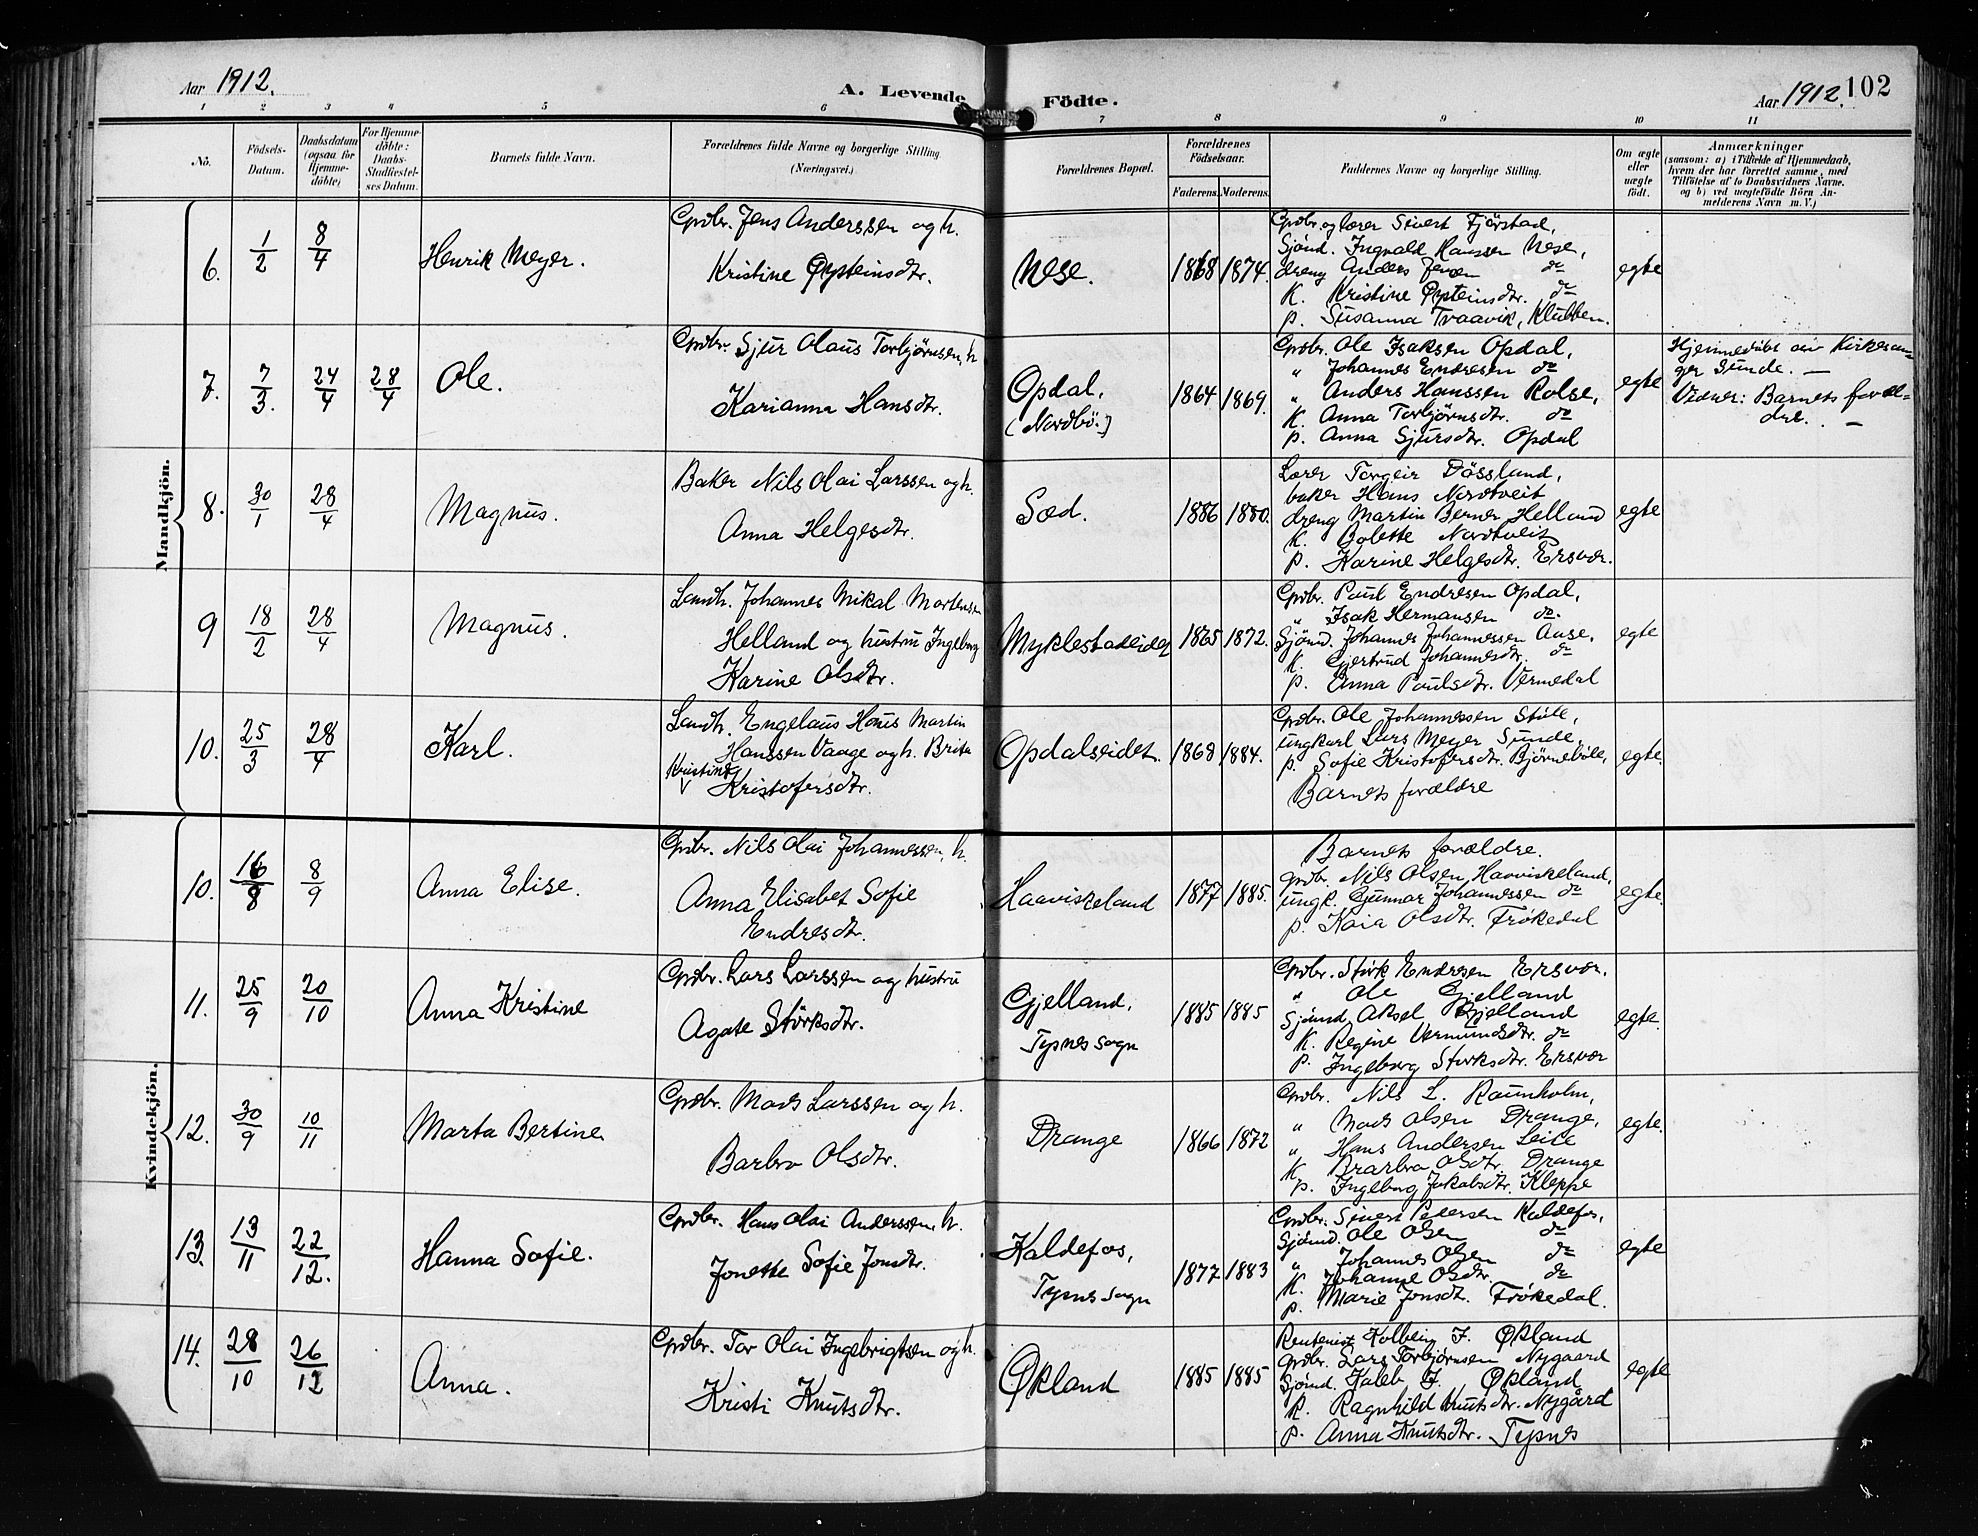 Aar 1912.
A. Levende
Födte.
Aar 1912.
102
1 2 3 4 5 6 7 8 9 10 11
No.
Födsels-Datum.
Daabsdatum (ogsaa for Hjemme-döbte)
For Hjemme-döbte: Daabs-Stadfæstel-ses Datum.
Barnets fulde Navn.
Forældrenes fulde Navne og borgerlige Stilling (Næringsvei.)
Forældrenes Bopæl.
Forældrenes Födselsaar.
Faderens.
Moderens.
Faddernes Navne og borgerlige Stilling.
Om ægte eller uægte födt.
Anmærkninger
(saasom: a) i Tilfælde af Hjemmedaab,
hvem der har forrettet samme, med
Tilföielse af to Daabsvidners Navne.
og b) ved uægtefödte Börn An-
melderens Navn m. V.)
Mandkjön.
6. 1/2 8/4 Henrik Meyer.
Gpdbr. Jens Anderssen og h.
Kristine Øysteinsdtr.
Nese. 1868 1874.
Gpdbr. og lærer Sivert Fjörstad,
Sjömd. Ingvald Hanssen Nese,
dreng Anders Jensen do
K. Kristine Øysteinsdtr. do
p. Susanna Traavik, Klubben.
egte
7. 7/3. 24/4 28/4 Ole.
Gpdbr. Sjur Olaus Torbjörnsen, h
Karianna Hansdtr.
Opdal.
(Nordbö.)
1864 1869.
Gpdbr. Ole Isaksen Opdal,
" Johannes Endresen do
" Anders Hanssen Rolse,
K. Anna Torbjörnsdtr. do
p. Anna Sjursdtr. Opdal
egte
Hjemmedöbt av Kirkesan-
ger Sunde. —
Vidner: Barnets foræl-
dre. —
8. 30/1 28/4 Magnus.
Baker Nils Olai Larssen og h.
Anna Helgesdtr.
Sæd. 1886 1880.
Lærer Torgeir Dössland,
baker Hans Nordtveit
dreng Martin Berner Helland
K. Bolette Nordtveit
p. Karine Helgesdtr. Ersvær.
egte
9 18/2 28/4 Magnus.
Landh. Johannes Mikal Mortensen
Helland og hustru Ingeborg
Karine Olsdtr.
Myklestadeidet 1865 1872.
Gpdbr. Paul Endresen Opdal,
" Isak Hermansen do.
Sjömd. Johannes Johannessen Aase,
K. Gjertrud Johannesdtr. do
p. Anna Paulsdtr. Vermedal
egte
10. 25/3 28/4 Karl.
Landh. Engelaus Hans Martin
Hanssen Vaage og h. Brita
Kristine
Kristofersdtr.
Opdalseidet. 1868 1884.
Gpdbr. Ole Johannessen Stöle,
ungkarl Lars Meyer Sunde,
p. Sofie Kristofersdtr. Björneböle,
Barnets forældre
egte.
Kvindekjön.
10. 16/8 8/9 Anna Elise.
Gpdbr. Nils Olai Johannessen, h.
Anna Elisabet Sofie
Endresdtr.
Haaviskeland 1877 1885.
Barnets forældre.
gpdb. Nils Olsen, Haaviskeland,
ungk. Gunnar Johannessen do
p. Kaia Olsdtr. Frökedal
egte.
11. 25/9 20/10 Anna Kristine
Gpdbr. Lars Larssen og hustru
Agate Störksdtr.
Gjelland,
Tysnes sogn
1885 1885
Gpdbr. Störk Endresen Ersvær.
" Ole Gjelland
Sjömd. Aksel Gjelland
K. Regine Vermundsdtr. do
p. Ingeborg Störksdtr. Ersvær
egte.
12. 30/9 10/11 Marta Bertine
Gpdbr. Mads Larssen og h.
Barbro Olsdtr.
Drange 1866 1872
Gpdbr. Nils L. Raunholm,
" Mads Olsen Drange,
" Hans Andersen Leite
K. Brarbra Olsdtr. Drange
p. Ingeborg Jakobsdtr. Kleppe
egte.
13. 13/11 22/12. Hanna Sofie.
Gpdbr. Hans Olai Anderssen, h.
Jonette Sofie Jonsdtr.
Kaldefos,
Tysnes sogn
1877 1883
Gpdbr. Sivert Pedersen Kaldefos,
Sjömd. Ole Olsen do
" Johannes Olsen do
K. Johanne Olsdtr. do
p. Marie Jonsdtr. Frökedal.
egte
14. 28/10 26/12 Anna.
Gpdbr. Tor Olai Ingebrigtsen og h.
Kristi Knutsdtr.
Økland 1885 1885
Rentenist Kolbein J. Økland
gpdbr. Lars Torbjörnsen Nygaard
Sjömd. Jakob J. Økland
K. Ragnhild Knutsdtr. Nygård
p. Anna Knutsdtr. Tysnes
egte